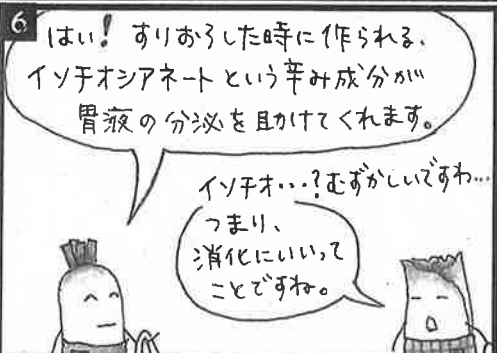 6
はい! すりおろした時に作られる、
イソチオシアネートという辛み成分が
胃液の分泌を助けてくれます。
イソチオ・・・?むずかしいですわ…
つまり、
消化にいいって
ことですね。